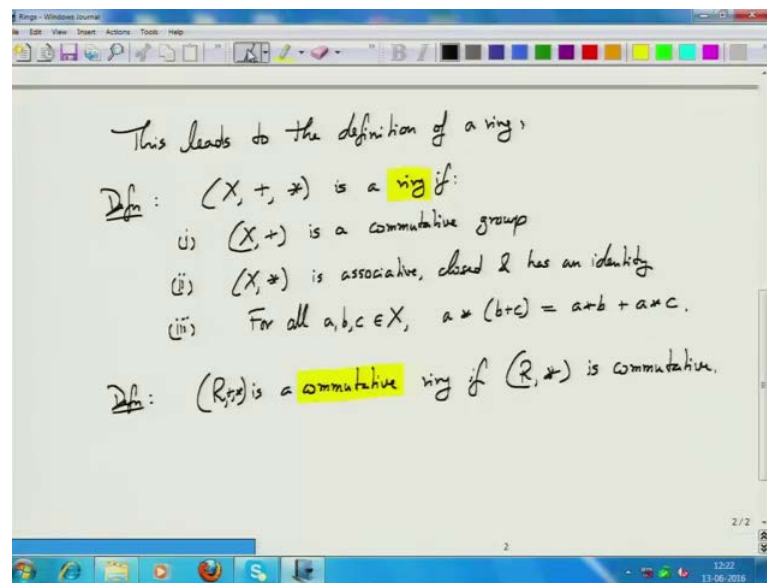 Rings - Windows Journal
File Edit View Insert Actions Tools Help
This leads to the definition of a ring,
Defn: (X, +, *) is a ring if:
(i) (X, +) is a commutative group
(ii) (X, *) is associative, closed & has an identity
(iii) For all a,b,c ∈ X, a * (b+c) = a*b + a*c.
Defn: (R,+,*) is a commutative ring if (R, *) is commutative.
2 / 2
2
12:22
13-06-2016